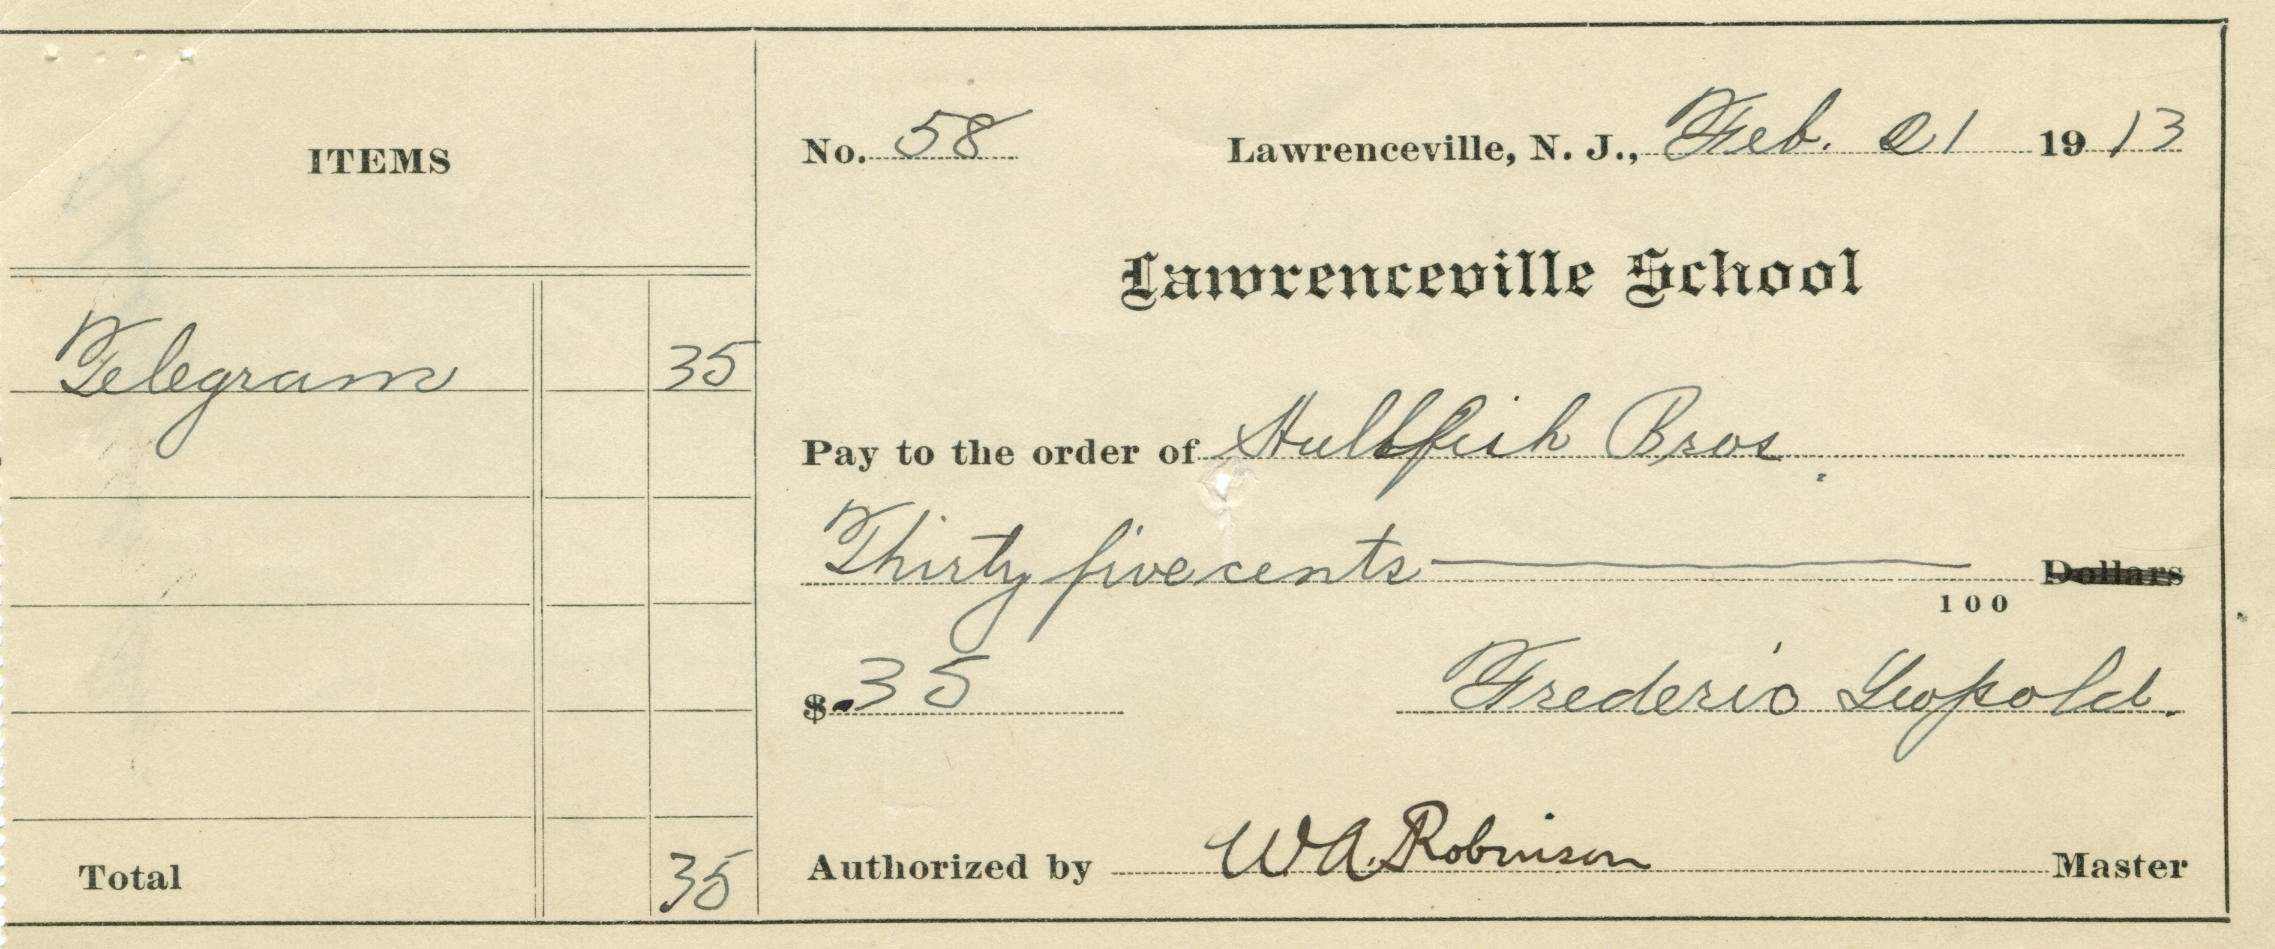 ITEMS
Telegram 35
Total 35
No. 58 Lawrenceville, N. J., Feb. 21 1913
Lawrenceville School
Pay to the order of Hullfish Bros.
Thirty five cents Dollars
100
$.35 Frederic Leopold.
Authorized by W.A. Robinson Master